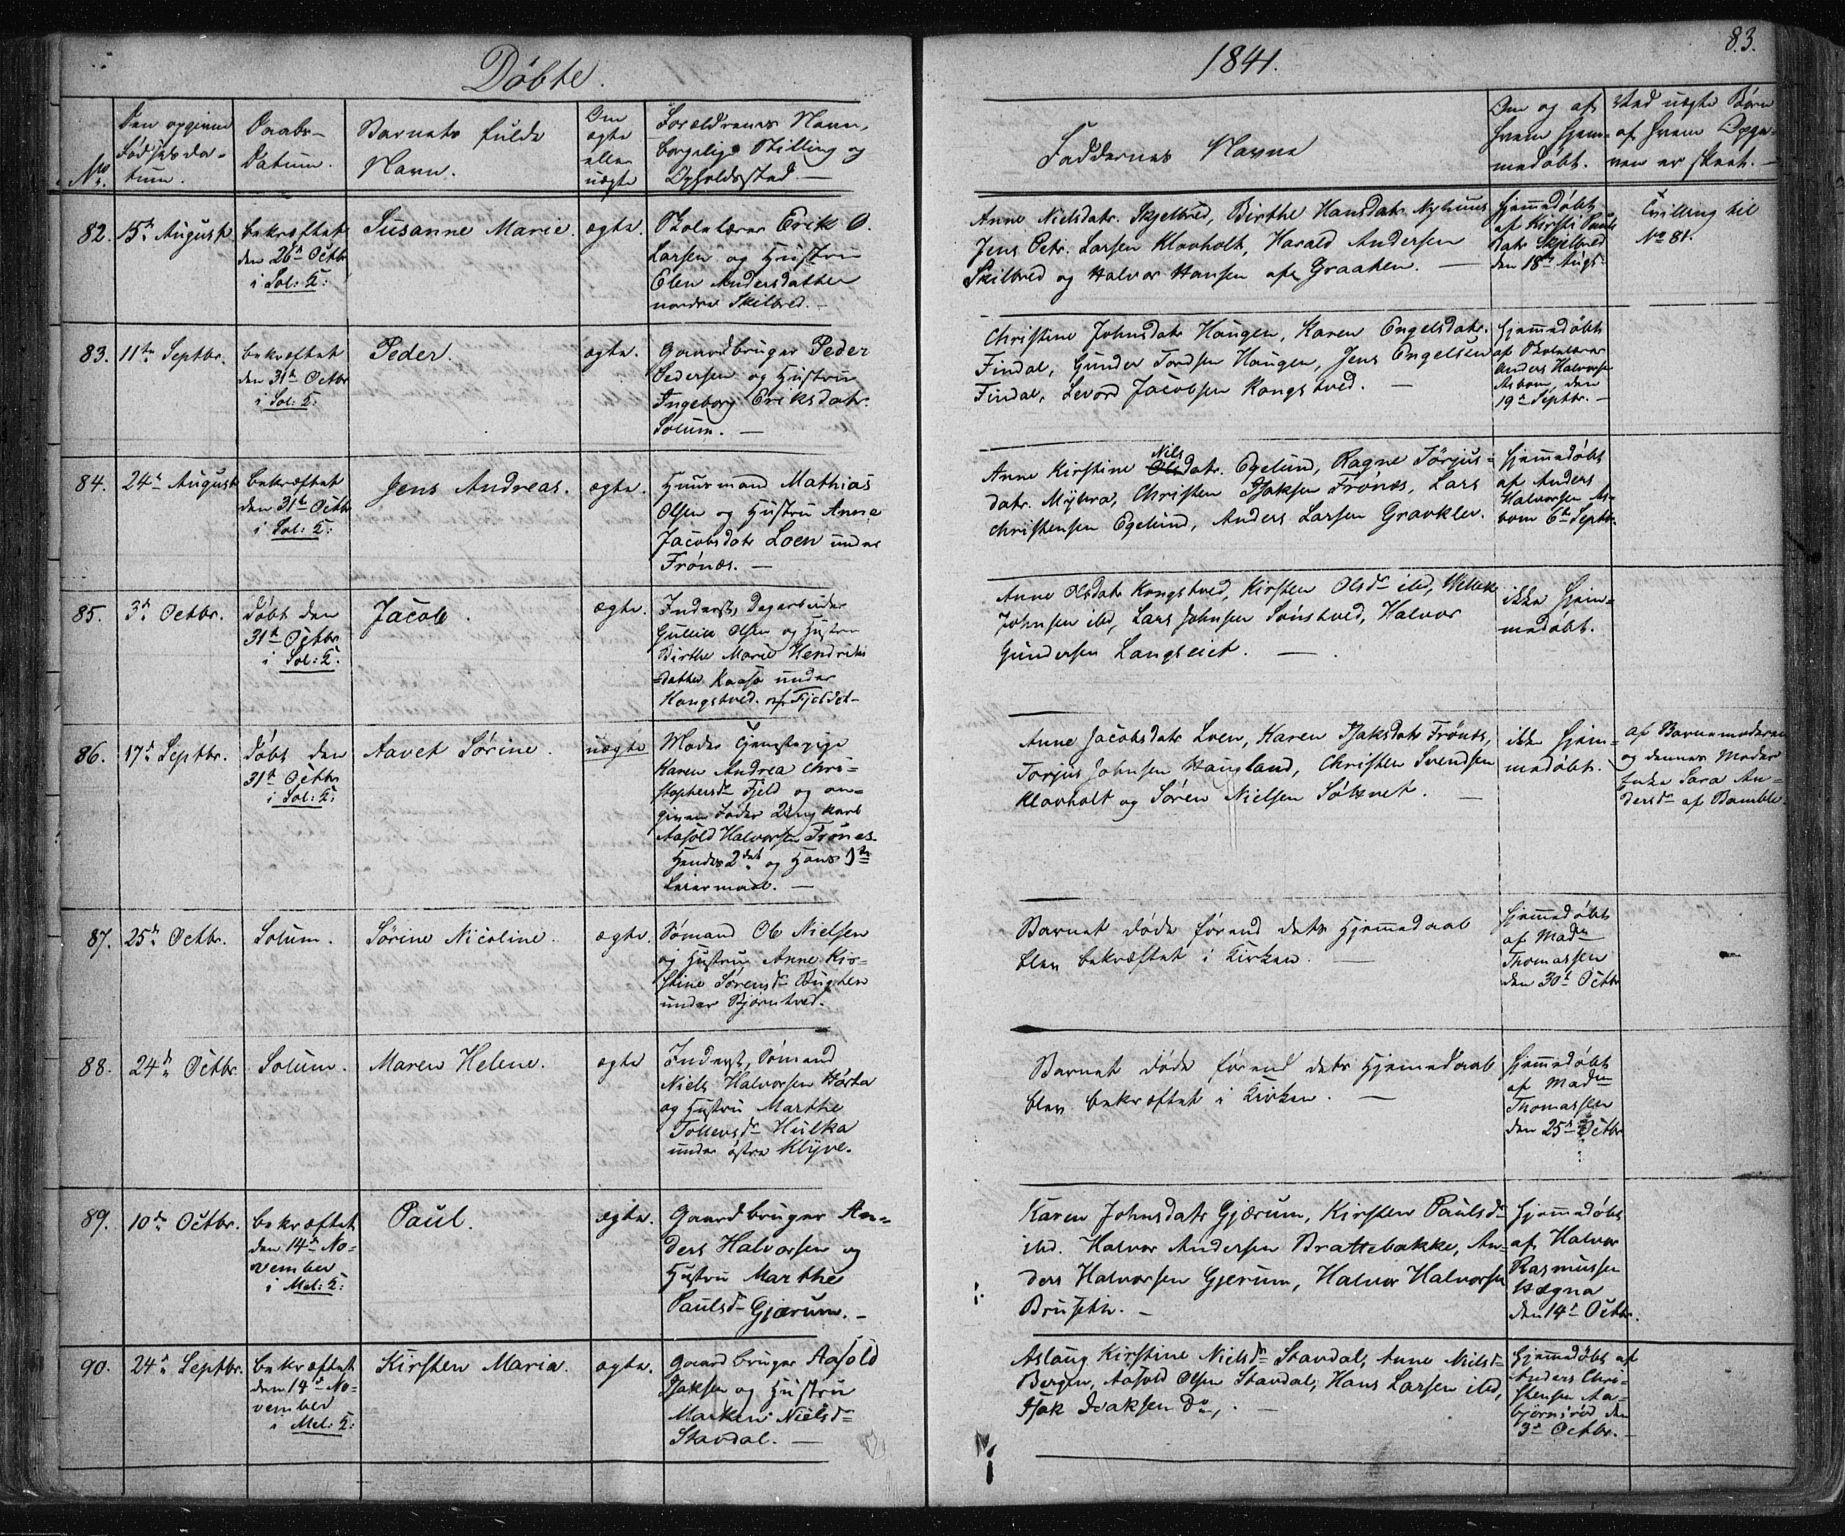 Döbte.
1841.
83.
No.
Den opgivne
Födselsda-
tum.
Daabs-
Datum.
Barnets fulde
Navn.
Om
ægte
eller
uægte
Forældrenes Navn,
borgelige Stilling og
Opholdssted.
Faddernes Navne
Om og af
hvem hjem-
medöbt.
Ved uægte Börn
af hvem Opga-
ven er skeet.
82.
15de August
bekræftet
den 26de Octbr.
i Sol: K:
Susanne Marie
ægte.
Skolelærer Erik O.
Larsen og Hustru
Elen Andersdatter
nordre Skilbred.
Anne Nielsdatr. Skjelbred, Birthe Hansdatr. Nyhuus
Jens Petr. Larsen Klovholt, Harald Andersen
Skilbred og Halvor Hansen af Graaten.
Hjemmedöbt
af Kirsti Pauls
datr Skjelbred
den 18de Augs
Tvilling til
No 81.
83.
11te Septbr.
bekræftet
den 31te Octbr
i Sol: K:
Peder.
ægte.
Gaardbruger Peder
Pedersen og Hustru
Ingeborg Eriksdatr.
Solum.
Christine Johnsdatr Haugen, Karen Engelsdatr.
Findal, Gunder Tordsen Haugen, Jens Engelsen
Findal, Levord Jacobsen Kongstved.
hjemmedöbt
af Skolelærer
Anders Halvorsen
Asbom, den
19de Septbr.
84.
24de August
bekræftet
den 31te Octbr
i Sol: K:
Jens Andreas.
ægte.
Huusmand Mathias
Olsen og Hustru Anne
Jacobsdatr Loen under
Frönæs.
Nils
Anne Kirstine Olsdatr. Egelund, Ragne Törjus-
datr. Myhra, Christen Isaksen Frönæs, Lars
Christensen Egelund, Anders Larsen Gravklev.
Hjemmedöbt
af Anders
Halvorsen As-
bom 6te Septbr.
85.
3de Octbr.
Döbt den
31te Octbr
i Sol: K.
Jacob.
ægte.
Inderst, Dagarbeider
Gullik Olsen og Hustru
Birthe Marie Hendriks
datter Kaasa under
Kongstved af Fjeldet
Anne Olsdatr Kongstved, Kirsten Olsdr ibd,
Johnsen ibd, Lars Johnsen Sönstved, Halvor
Gundersen Langseiet.
ikke hjem-
medöbt.
86.
17de Septbr.
Döbt den
31te Octbr
i Sol: K:
Aavet Sörine.
uægte
Moder Tjenestepige
Karen Andrea Chri-
stophersdr Fjeld og an-
given Fader Ungkarl
Aasold Halvorsen Frönes.
Hendes 2det og Hans 1ste
Leiermaal.
Anne Jacobsdatr Loen, Karen Isaksdatr Frönes,
Torjus Johnsen Haugland, Christen Svendsen
Klovholt og Sören Nielsen
ikke hjem-
medöbt.
af Barnemoderen
og dennes Moder
Enke Sara An-
dersdr af Bamble.
87.
25de Octbr.
Solum.
Sörine Nicoline.
ægte.
Sömand Ole Nielsen
og Hustru Anne Kir-
stine Sörensdr Bugten
under Björntved.
Barnet döde förend dets Hjemmedaab
blev bekræftet i Kirken.
hjemmedöbt
af Madm
Thomassen
den 30te Octbr
88.
24de Octbr.
Solum.
Maren Helene.
ægte
Inderst, Sömand
Niels Halvorsen Börta
og Hustru Marthe
Tollevsdr Hulka
under östre Klyve.
Barnet döde förend dets Hjemmedaab
blev bekræftet i Kirken.
hjemmedöbt
af Madm
Thomassen
den 25de Octbr
89.
10de Octbr.
bekræftet
den 14de No-
vember
i Mel: K:
Paul.
ægte.
Gaardbruger An-
ders Halvorsen og
Hustru Marthe
Paulsdr Gjærum.
Karen Johnsdatr Gjærum, Kirsten Paulsdr
ibd. Halvor Andersen Brattebakke, An-
ders Halvorsen Gjerum, Halvor Halvorsen
Brusetn.
hjemmedöbt
af Halvor
Rasmussen
Hægna
den 14de Octbr.
90.
24de Septbr.
bekræftet
den 14de No-
vember
i Mel: K:
Kirsten Maria.
ægte.
Gaardbruger Aasold
Isaksen og Hustru
Marken Nielsdr
Stavdal.
Aslaug Kirstine Nielsdr Stavdal, Anne Nielsdr
Bergen, Aasold Olsen Stavdal, Hans Larsen ibd,
Isak Isaksen Do,
Hjemmedöbt af
Anders Chri-
stensen Aa-
björnsröd den
3de Octbr.